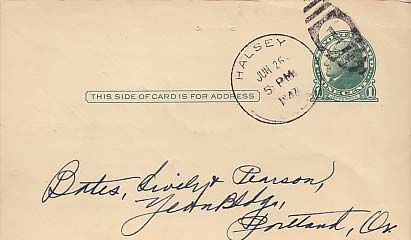 HALSEY
JUN 26
5 PM
THIS SIDE OF CARD IS FOR ADDRESS
1
Bates, Lively & Pearson,
Yeon Bldg.,
Portland, Or.